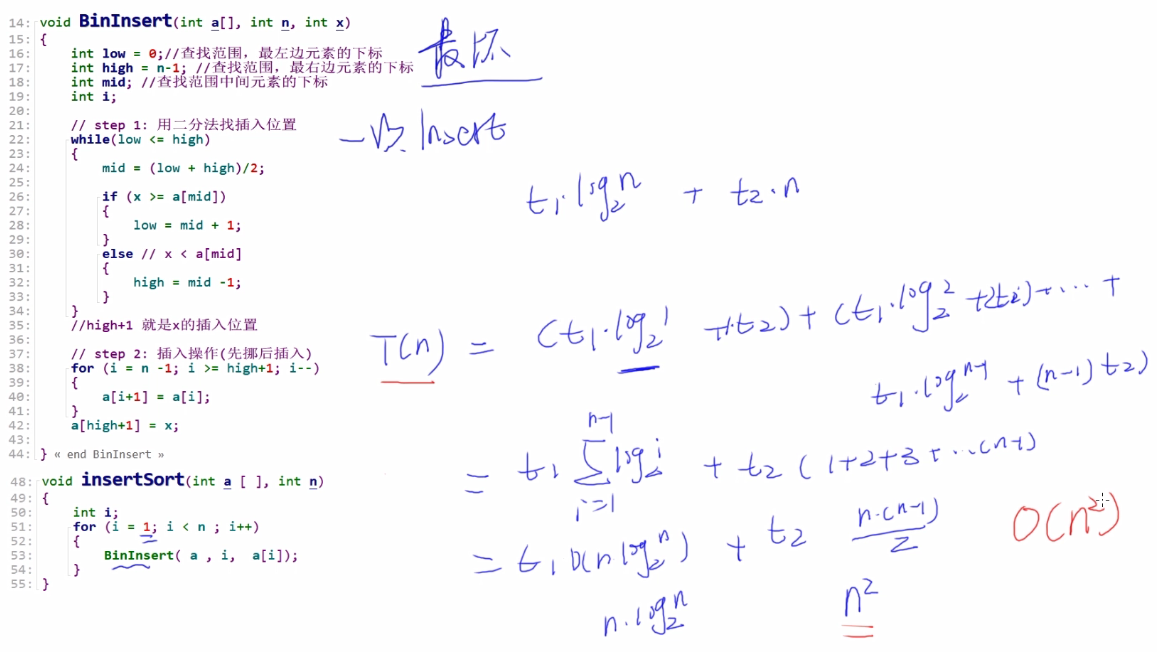 14: void BinInsert(int a[], int n, int x)
15: {
16: int low = 0;//查找范围，最左边元素的下标
17: int high = n-1; //查找范围，最右边元素的下标
18: int mid; //查找范围中间元素的下标
19: int i;
20:
21: // step 1: 用二分法找插入位置
22: while(low <= high)
23: {
24: mid = (low + high)/2;
25:
26: if (x >= a[mid])
27: {
28: low = mid + 1;
29: }
30: else // x < a[mid]
31: {
32: high = mid -1;
33: }
34: }
35: //high+1 就是x的插入位置
36:
37: // step 2: 插入操作(先挪后插入)
38: for (i = n -1; i >= high+1; i--)
39: {
40: a[i+1] = a[i];
41: }
42: a[high+1] = x;
43:
44: } « end BinInsert »
48: void insertSort(int a [ ], int n)
49: {
50: int i;
51: for (i = 1; i < n ; i++)
52: {
53: BinInsert( a , i, a[i]);
54: }
55: }
最坏
一次 Insert
t₁·log₂ⁿ + t₂·n
T(n) = (t₁·log₂¹ +1·t₂) + (t₁·log₂² +2t₂) + ··· +
t₁·log₂ⁿ⁻¹ + (n-1) t₂)
= t₁ ∑ᵢ₌₁ⁿ⁻¹ log₂ⁱ + t₂ (1+2+3+···(n-1)
= t₁ O(n log₂ⁿ) + t₂ n·(n-1)/2
O(n²)
n·log₂ⁿ n²